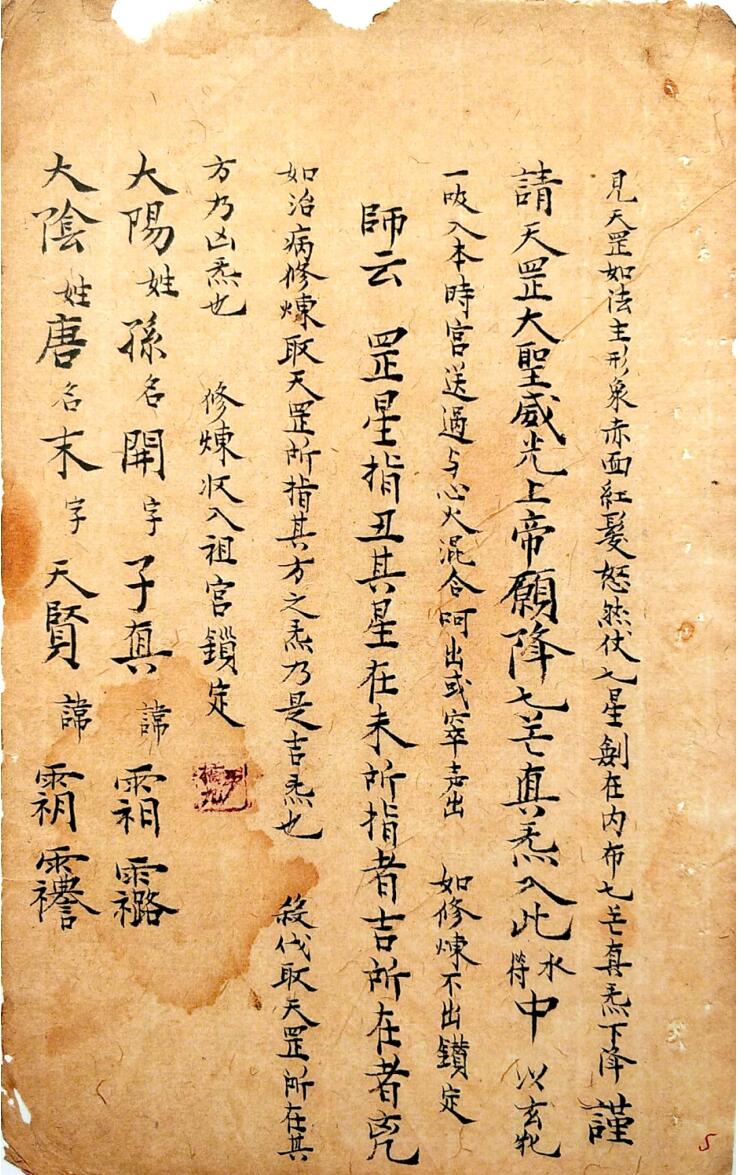 見天罡如法主形象赤面紅髮怒然仗七星劍在内布七芒真炁下降 謹
請天罡大聖威光上帝願降七芒真炁入此水符中 以玄牝
一吸入本時宮送過与心火混合呵出或 出 如修煉不出鎖定
師云 罡星指丑其星在未所指者吉所在者兇
如治病修煉取天罡所指其方之炁乃是吉炁也 殺伐取天罡所在其
方乃凶炁也 修煉収入祖宮鎖定
大陽姓孫名開字子真諱
大陰姓唐名末字天賢諱
5